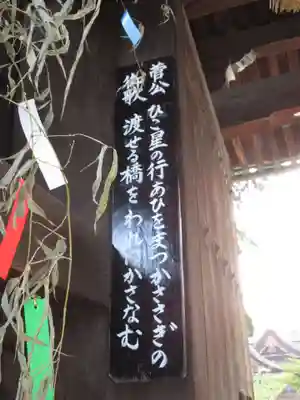 菅公 ひこ星の行あひをまつかささぎの
御歌 渡せる橋をわれにかさなむ